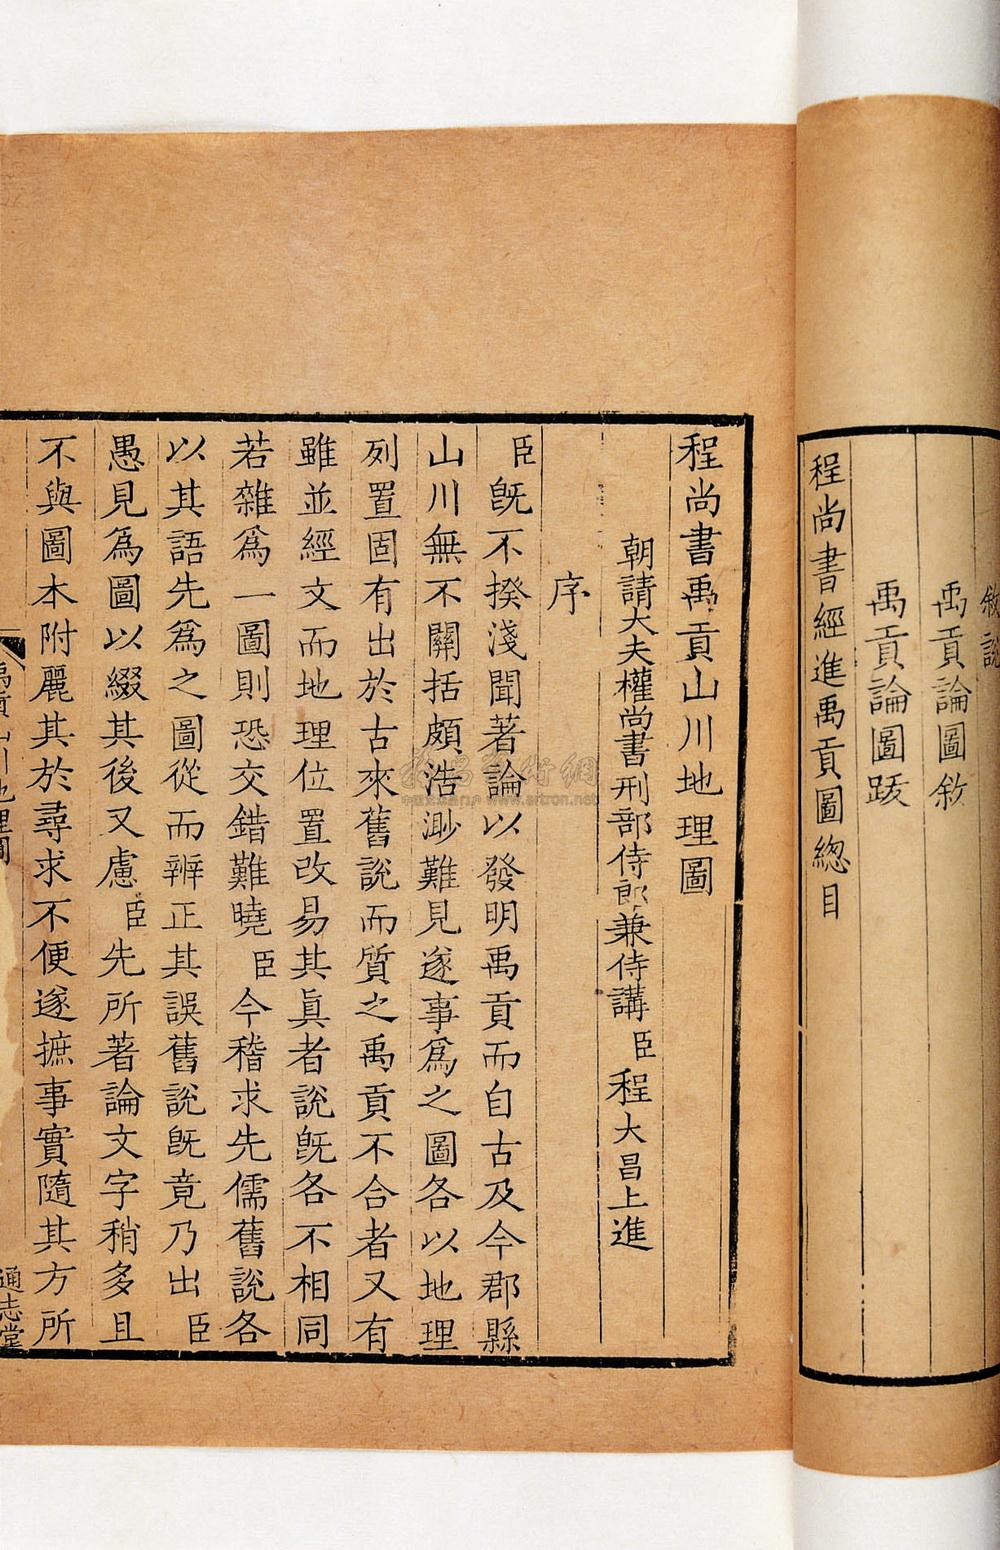 敘說
禹貢論圖敘
禹貢論圖䟦
程尚書經進禹貢圖緫目
程尚書禹貢山川地理圖
朝請大夫權尚書刑部侍郎兼侍講臣程大昌上進
序
臣旣不揆淺聞著論以發明禹貢而自古及今郡縣
山川無不關括頗浩渺難見遂事爲之圖各以地理
列置固有出於古來舊說而質之禹貢不合者又有
雖並經文而地理位置改易其眞者說旣各不相同
若雜爲一圖則恐交錯難曉臣今稽求先儒舊說各
以其語先爲之圖從而辨正其誤舊說旣竟乃出臣
愚見爲圖以綴其後又慮臣先所著論文字稍多且
不與圖本附麗其於尋求不便遂摭事實隨其方所
禹貢山川地理圖
通志堂
www.artron.net